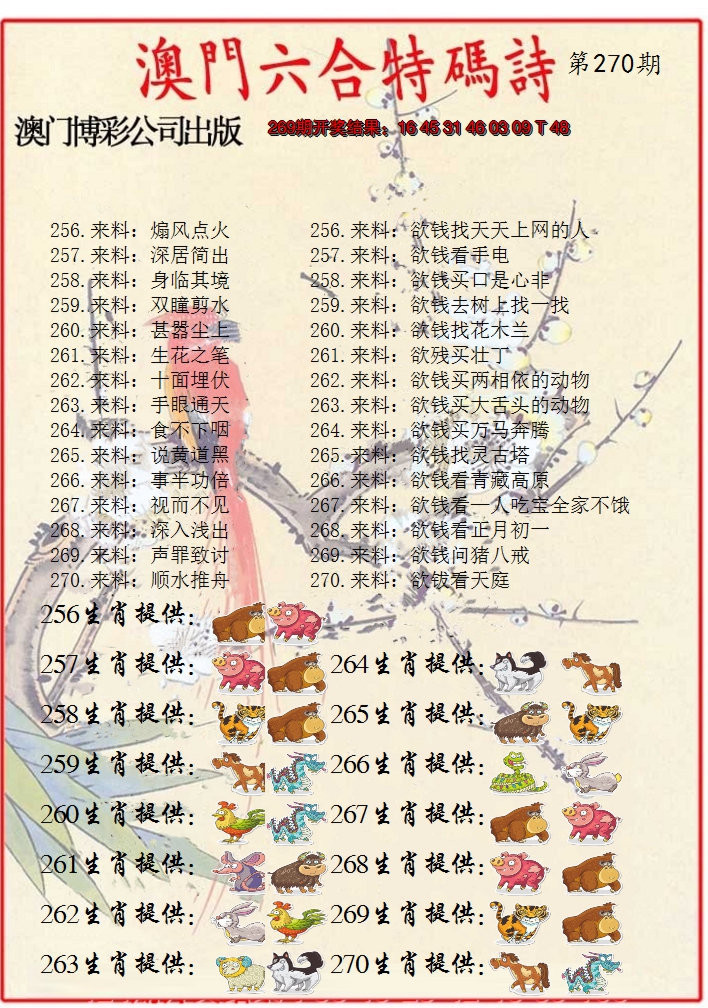 澳門六合特碼詩 第270期
澳门博彩公司出版 269期开奖结果：16 45 31 46 03 09 T 48
256.来料：煽风点火 256.来料：欲钱找天天上网的人
257.来料：深居简出 257.来料：欲钱看手电
258.来料：身临其境 258.来料：欲钱买口是心非
259.来料：双瞳剪水 259.来料：欲钱去树上找一找
260.来料：甚器尘上 260.来料：欲钱找花木兰
261.来料：生花之笔 261.来料：欲残买壮丁
262.来料：十面埋伏 262.来料：欲钱买两相依的动物
263.来料：手眼通天 263.来料：欲钱买大舌头的动物
264.来料：食不下咽 264.来料：欲钱买万马奔腾
265.来料：说黄道黑 265.来料：欲钱找灵古塔
266.来料：事半功倍 266.来料：欲钱看青藏高原
267.来料：视而不见 267.来料：欲钱看一人吃宝全家不饿
268.来料：深入浅出 268.来料：欲钱看正月初一
269.来料：声罪致讨 269.来料：欲钱问猪八戒
270.来料：顺水推舟 270.来料：欲钹看天庭
256生肖提供：
257生肖提供： 264生肖提供：
258生肖提供： 265生肖提供：
259生肖提供： 266生肖提供：
260生肖提供： 267生肖提供：
261生肖提供： 268生肖提供：
262生肖提供： 269生肖提供：
263生肖提供： 270生肖提供：